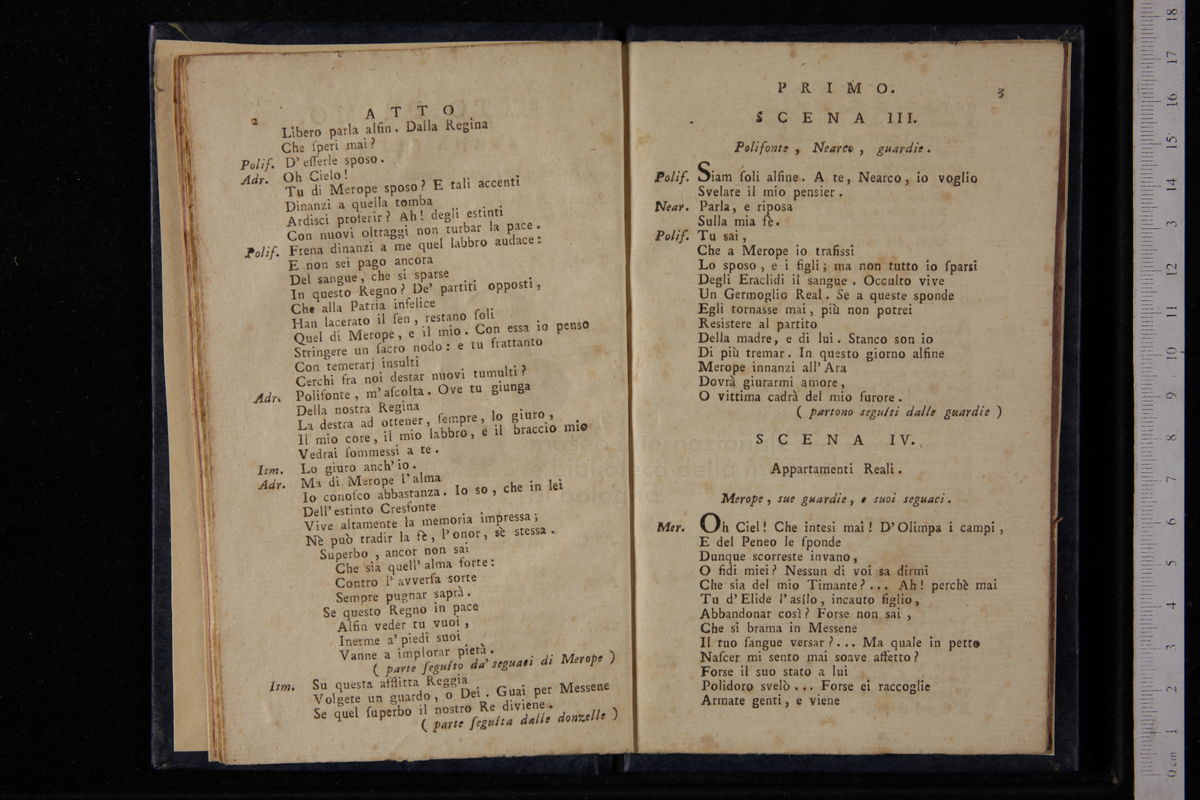 2
A T T O
Libero parla alfin. Dalla Regina
Che ſperi mai?
Polif. D' eſſerle sposo.
Adr. Oh Cielo!
Tu di Merope sposo? E tali accenti
Dinanzi a quella tomba
Ardisci proferir? Ah! degli estinti
Con nuovi oltraggi non turbar la pace.
Polif. Frena dinanzi a me quel labbro audace:
E non sei pago ancora
Del sangue, che si sparse
In questo Regno? De' partiti opposti,
Che alla Patria infelice
Han lacerato il ſen, restano ſoli
Quel di Merope, e il mio. Con essa io penso
Stringere un ſacro nodo: e tu frattanto
Con temerarj insulti
Cerchi fra noi destar nuovi tumulti?
Adr. Polifonte, m' aſcolta. Ove tu giunga
Della nostra Regina
La destra ad ottener, ſempre, lo giuro,
Il mio core, il mio labbro, e il braccio mio
Vedrai ſommessi a te.
Ism. Lo giuro anch' io.
Adr. Ma di Merope l' alma
Io conoſco abbastanza. Io so, che in lei
Dell' estinto Cresfonte
Vive altamente la memoria impressa;
Nè può tradir la fè, l' onor, sè stessa.
Superbo, ancor non sai
Che sia quell' alma forte:
Contro l' avverſa sorte
Sempre pugnar saprà.
Se questo Regno in pace
Alfin veder tu vuoi,
Inerme a' piedi suoi
Vanne a implorar pietà.
( parte ſeguito da' seguaci di Merope )
Ism. Su questa afflitta Reggia
Volgete un guardo, o Dei. Guai per Messene
Se quel ſuperbo il nostro Re diviene.
( parte ſeguita dalle donzelle )
P R I M O.
3
S C E N A III.
Polifonte, Nearco, guardie.
Polif. Siam ſoli alfine. A te, Nearco, io voglio
Svelare il mio pensier.
Near. Parla, e riposa
Sulla mia fè.
Polif. Tu sai,
Che a Merope io trafissi
Lo sposo, e i figli; ma non tutto io ſparsi
Degli Eraclidi il sangue. Occulto vive
Un Germoglio Real. Se a queste sponde
Egli tornasse mai, più non potrei
Resistere al partito
Della madre, e di lui. Stanco son io
Di più tremar. In questo giorno alfine
Merope innanzi all' Ara
Dovrà giurarmi amore,
O vittima cadrà del mio furore.
( partono seguiti dalle guardie )
S C E N A IV.
Appartamenti Reali.
Merope, sue guardie, e suoi seguaci.
Mer. Oh Ciel! Che intesi mai! D' Olimpa i campi,
E del Peneo le ſponde
Dunque scorreste invano,
O fidi miei? Nessun di voi sa dirmi
Che sia del mio Timante?... Ah! perchè mai
Tu d' Elide l' asilo, incauto figlio,
Abbandonar così? Forse non sai,
Che si brama in Messene
Il tuo ſangue versar?... Ma quale in petto
Naſcer mi sento mai soave affetto?
Forse il suo stato a lui
Polidoro svelò... Forse ei raccoglie
Armate genti, e viene